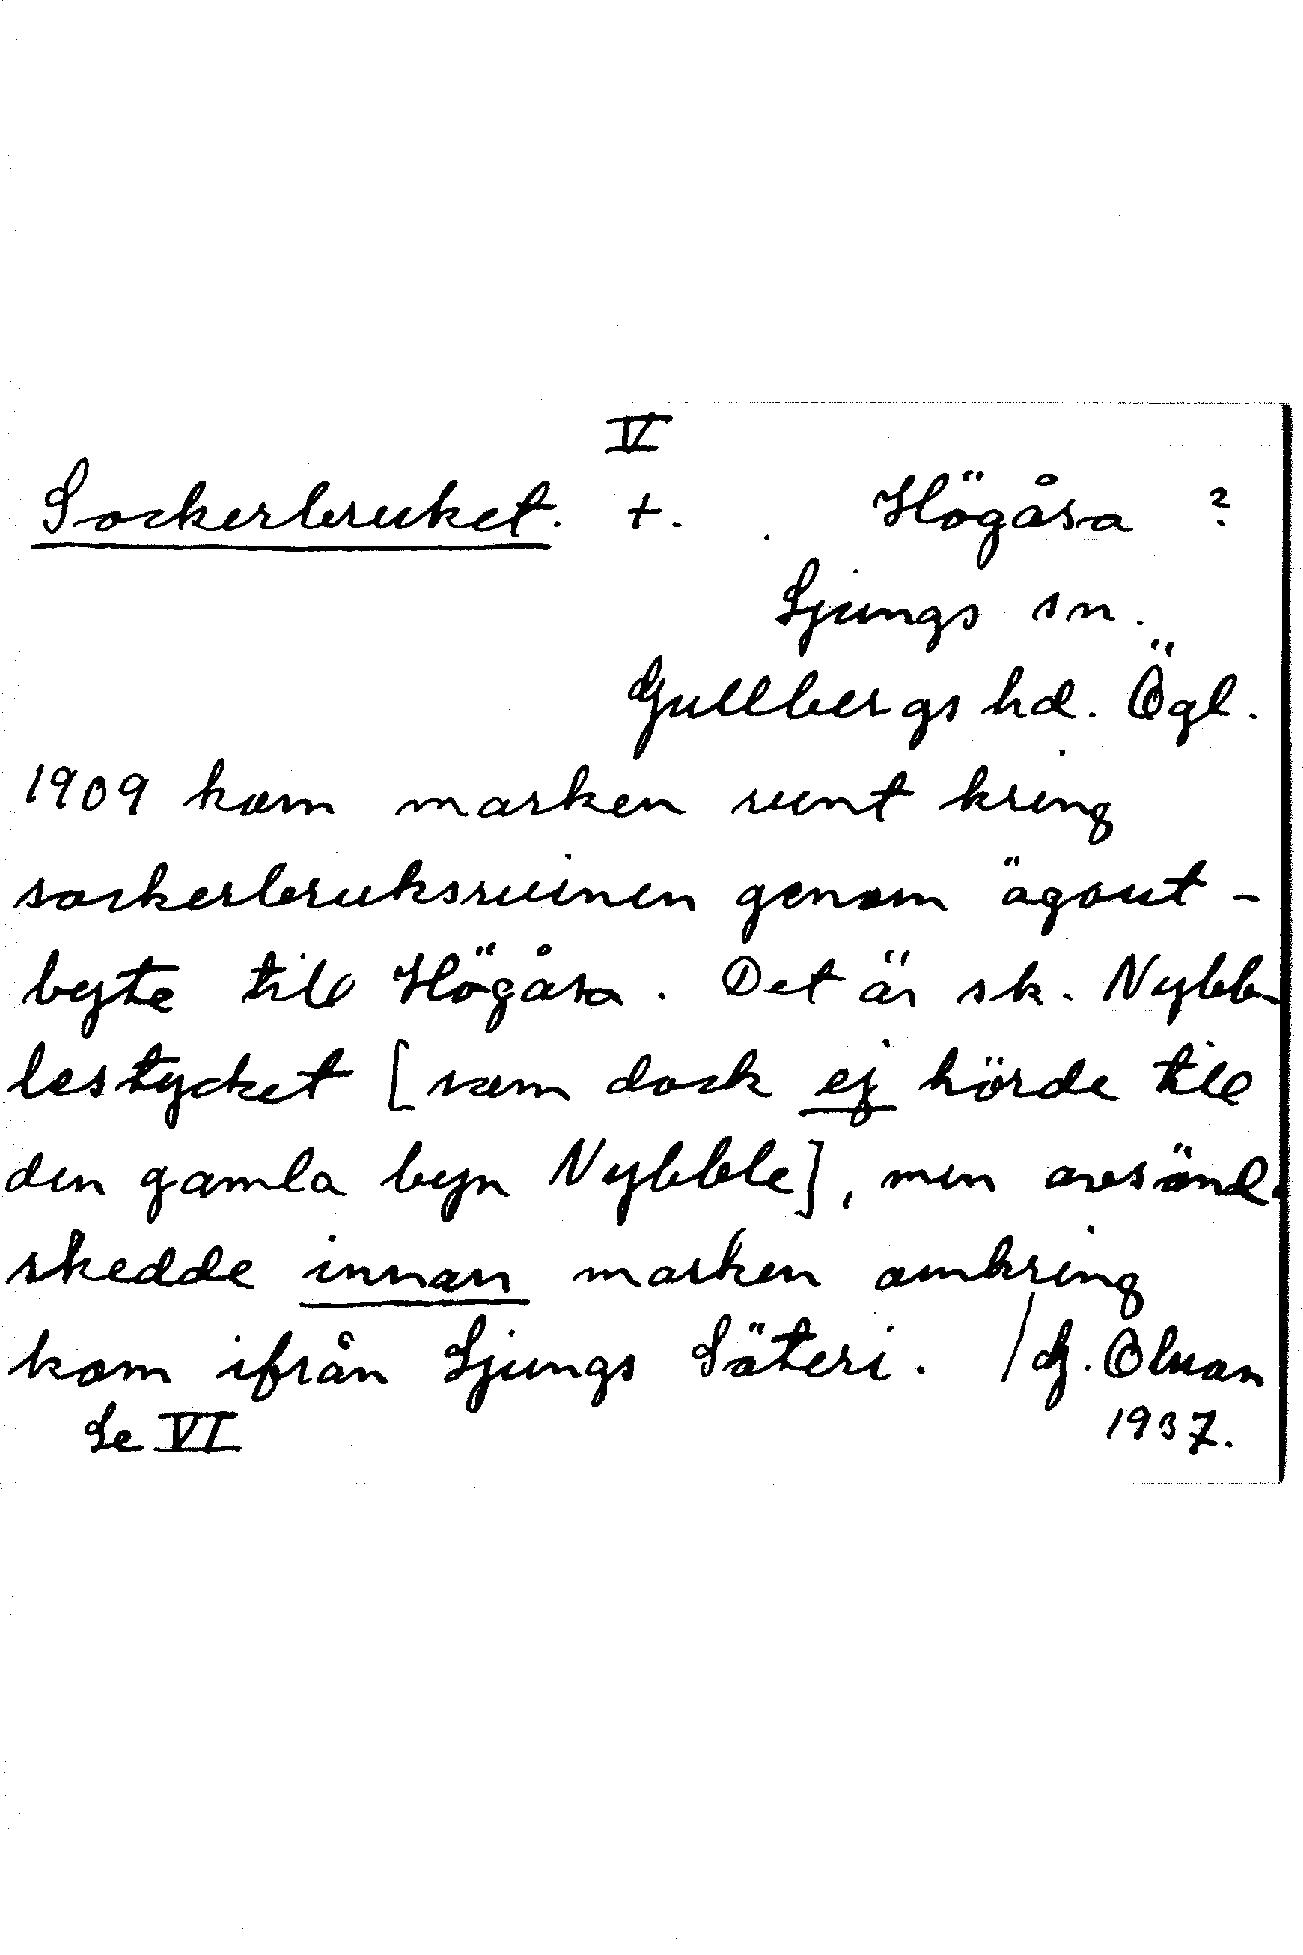 V
Sockerbruket. +. Högåsa ?
Ljungs sn.
Gullbergs hd. Ögl.
1909 kom marken runt kring
sockerbruksruinen genom ägout-
byte till Högåsa. Det är sk. Nybb-
lestycket [som dock ej hörde till
den gamla byn Nybble], men
skedde innan marken omkring
kom ifrån Ljungs Säteri. / Olsson
Se VI 1937.